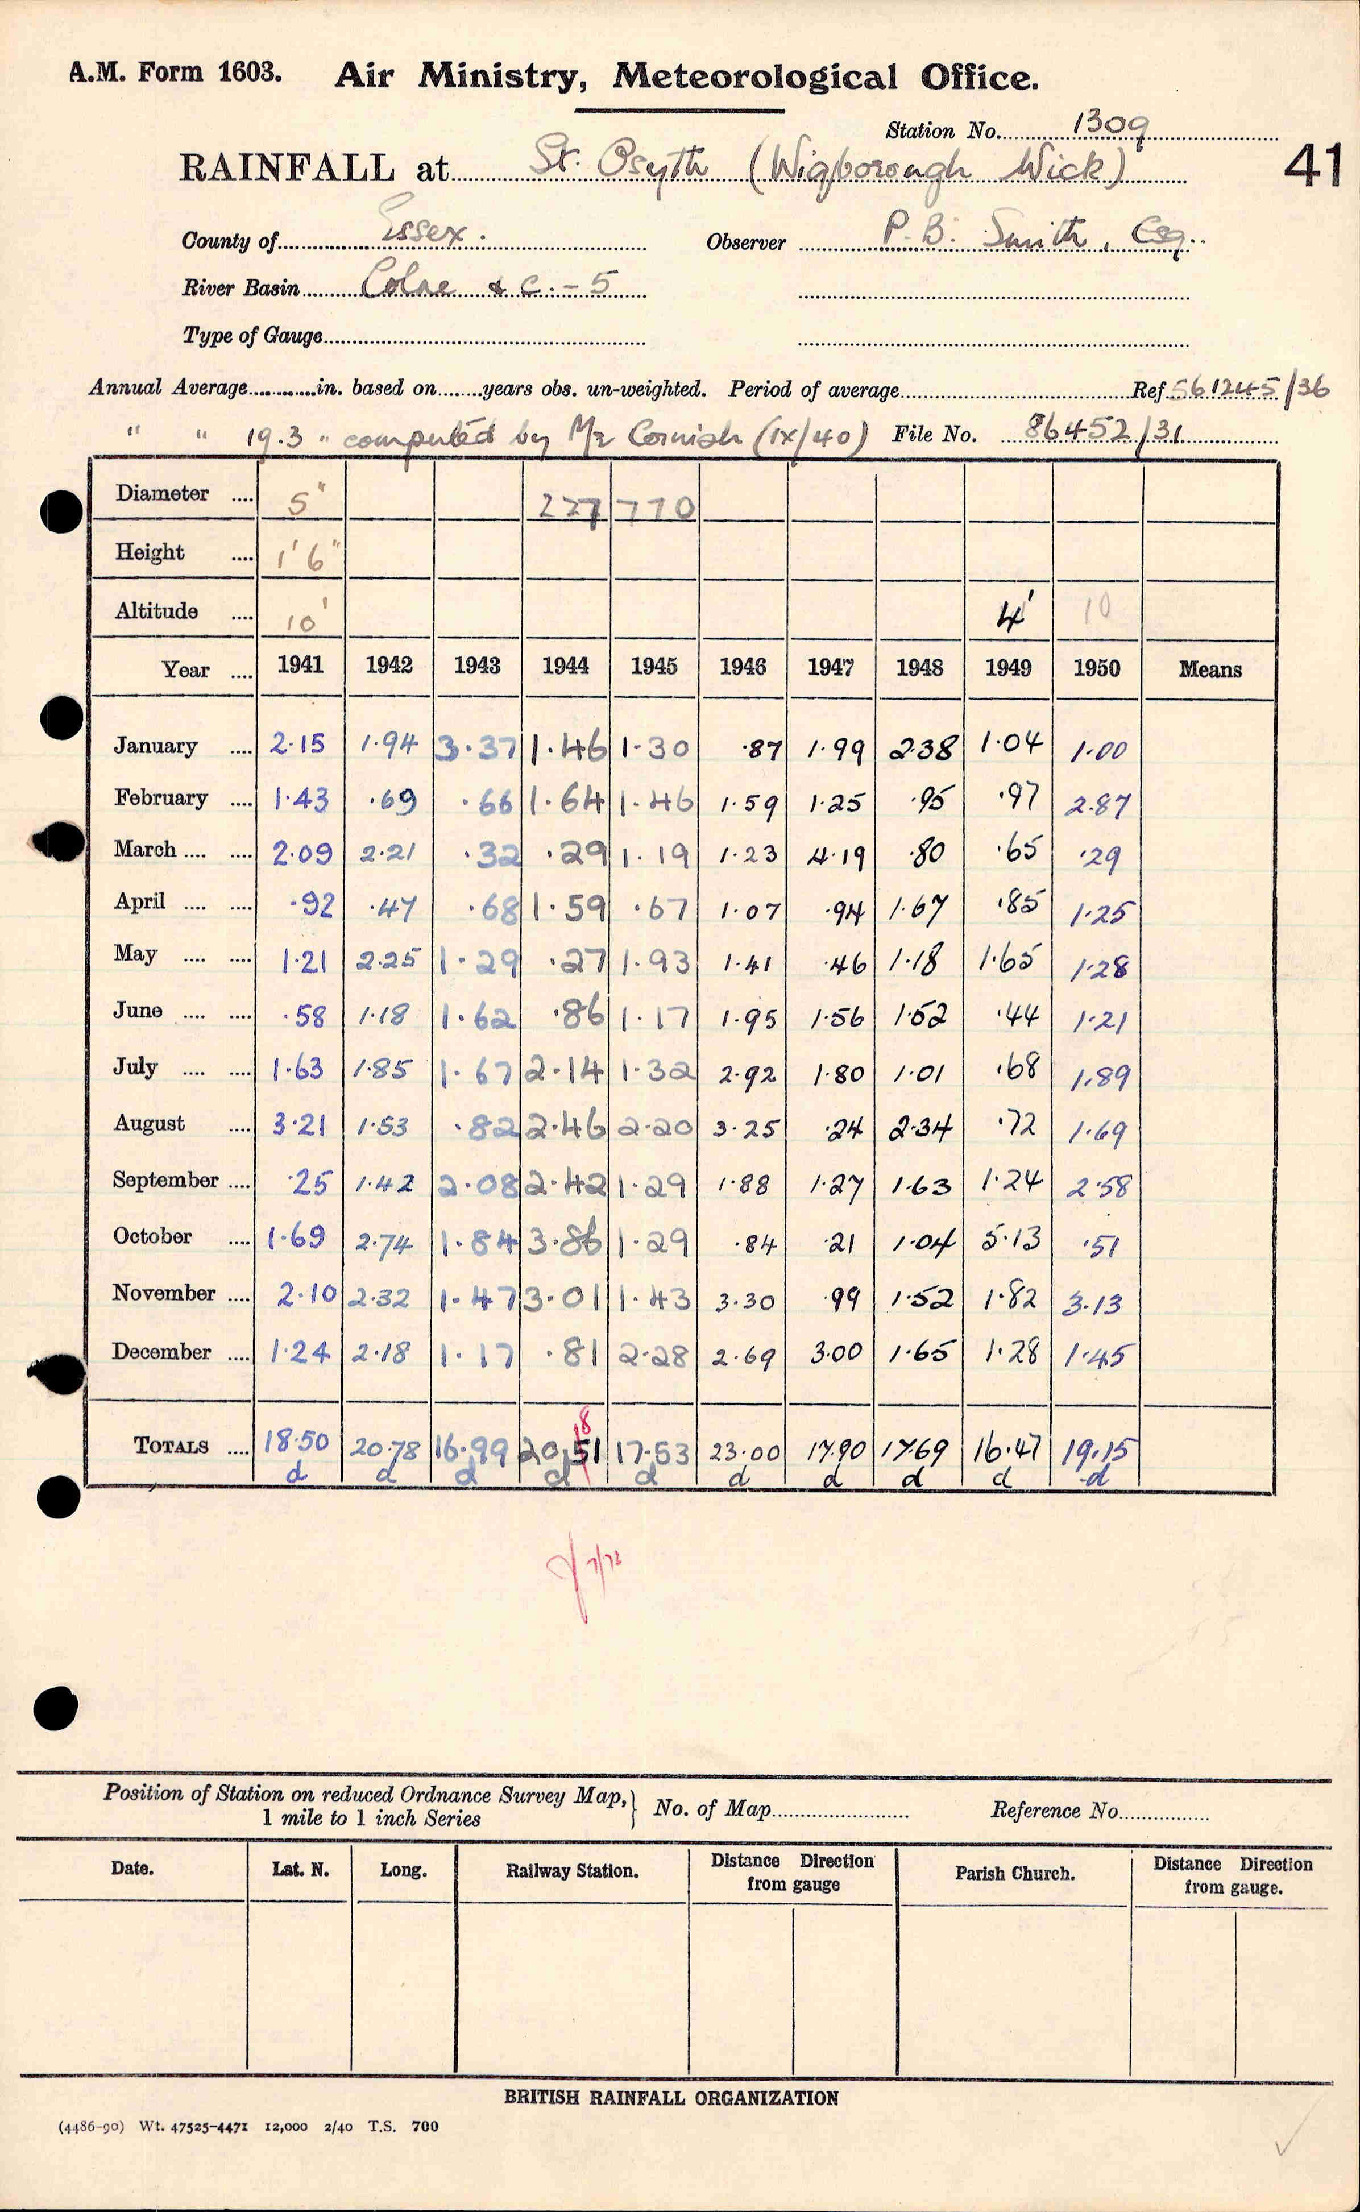 A.M. Form 1603. Air Ministry, Meteorological Office.
Station No. 1309
RAINFALL at St. Osyth (Wigborough Wick) 41
County of Essex. Observer P. B. Smith, Esq.
River Basin Colne & C. - 5
Type of Gauge
Annual Average in. based on years obs. un-weighted. Period of average Ref 561245/36
" " 19.3 " computed by Mr Cornish (ix/40) File No. 86452/31
Diameter 5" 227 770
Height 1' 6"
Altitude 10' 4' 10
Year 1941 1942 1943 1944 1945 1946 1947 1948 1949 1950 Means
January 2.15 1.94 3.37 1.46 1.30 .87 1.99 2.38 1.04 1.00
February 1.43 .69 .66 1.64 1.46 1.59 1.25 .95 .97 2.87
March 2.09 2.21 .32 .29 1.19 1.23 4.19 .80 .65 .29
April .92 .47 .68 1.59 .67 1.07 .94 1.67 .85 1.25
May 1.21 2.25 1.29 .27 1.93 1.41 .46 1.18 1.65 1.28
June .58 1.18 1.62 .86 1.17 1.95 1.56 1.52 .44 1.21
July 1.63 1.85 1.67 2.14 1.32 2.92 1.80 1.01 .68 1.89
August 3.21 1.53 .82 2.46 2.20 3.25 .24 2.34 .72 1.69
September .25 1.42 2.08 2.42 1.29 1.88 1.27 1.63 1.24 2.58
October 1.69 2.74 1.84 3.86 1.29 .84 .21 1.04 5.13 .51
November 2.10 2.32 1.47 3.01 1.43 3.30 .99 1.52 1.82 3.13
December 1.24 2.18 1.17 .81 2.28 2.69 3.00 1.65 1.28 1.45
8
TOTALS 18.50 20.78 16.99 20.51 17.53 23.00 17.90 17.69 16.47 19.15
d d d d d d d d d d
7/73
Position of Station on reduced Ordnance Survey Map, No. of Map Reference No.
1 mile to 1 inch Series
Date. Lat. N. Long. Railway Station. Distance Direction from gauge Parish Church. Distance Direction from gauge.
BRITISH RAINFALL ORGANIZATION
(4486-90) Wt. 47525-4471 12,000 2/40 T.S. 700